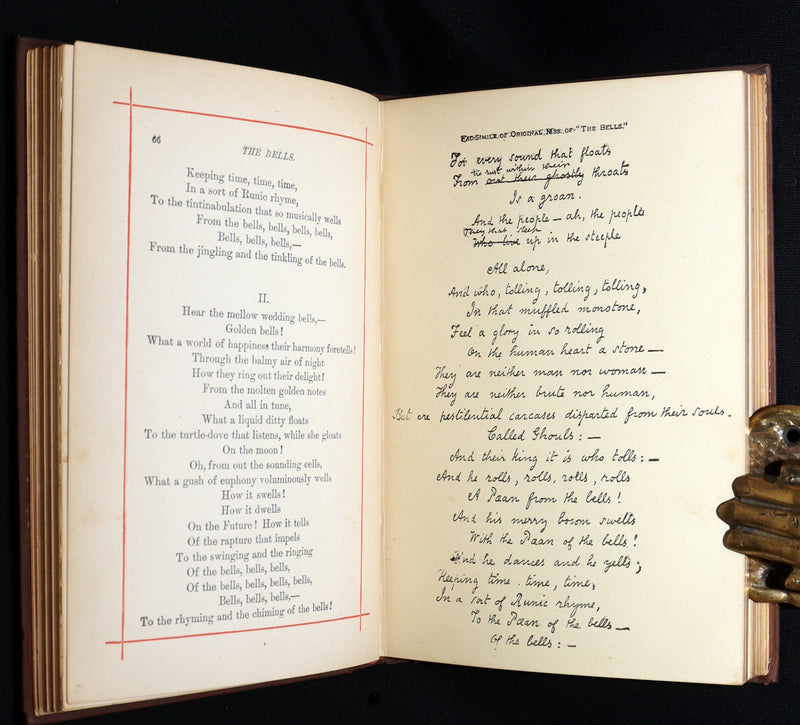 66
THE BELLS.
Keeping time, time, time,
In a sort of Runic rhyme,
To the tintinabulation that so musically wells
From the bells, bells, bells, bells,
Bells, bells, bells,—
From the jingling and the tinkling of the bells.
II.
Hear the mellow wedding bells,—
Golden bells!
What a world of happiness their harmony foretells!
Through the balmy air of night
How they ring out their delight!
From the molten golden notes
And all in tune,
What a liquid ditty floats
To the turtle-dove that listens, while she gloats
On the moon!
Oh, from out the sounding cells,
What a gush of euphony voluminously wells
How it swells!
How it dwells
On the Future! How it tells
Of the rapture that impels
To the swinging and the ringing
Of the bells, bells, bells,
Of the bells, bells, bells, bells,
Bells, bells, bells,—
To the rhyming and the chiming of the bells!
FAC-SIMILE OF ORIGINAL MSS. OF "THE BELLS."
For every sound that floats
the rust within their
From out their ghostly throats
Is a groan.
And the people — ah, the people
They that sleep
Who live up in the steeple
All alone,
And who, tolling, tolling, tolling,
In that muffled monotone,
Feel a glory in so rolling
On the human heart a stone —
They are neither man nor woman —
They are neither brute nor human,
But are pestilential carcases disparted from their souls.
Called Ghouls: —
And their king it is who tolls: —
And he rolls, rolls, rolls, rolls
A Pæan from the bells!
And his merry bosom swells
With the Pæan of the bells!
And he dances and he yells;
Keeping time. time, time,
In a sort of Runic rhyme,
To the Pæan of the bells —
Of the bells: —